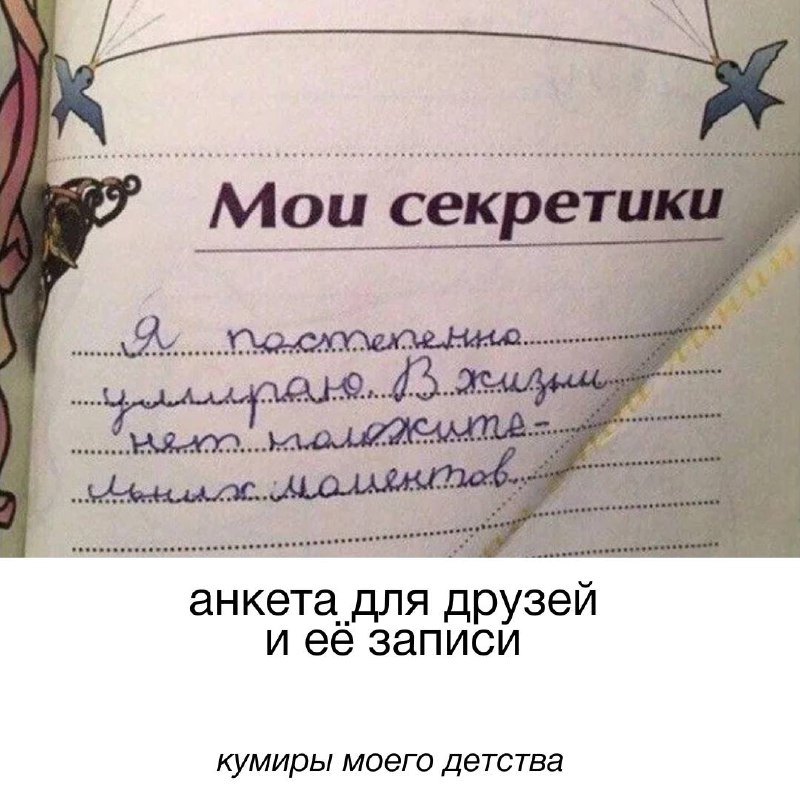 Мои секретики
Я постепенно
умираю. В жизни
нет положите-
льних моментов.
анкета для друзей
и её записи
кумиры моего детства